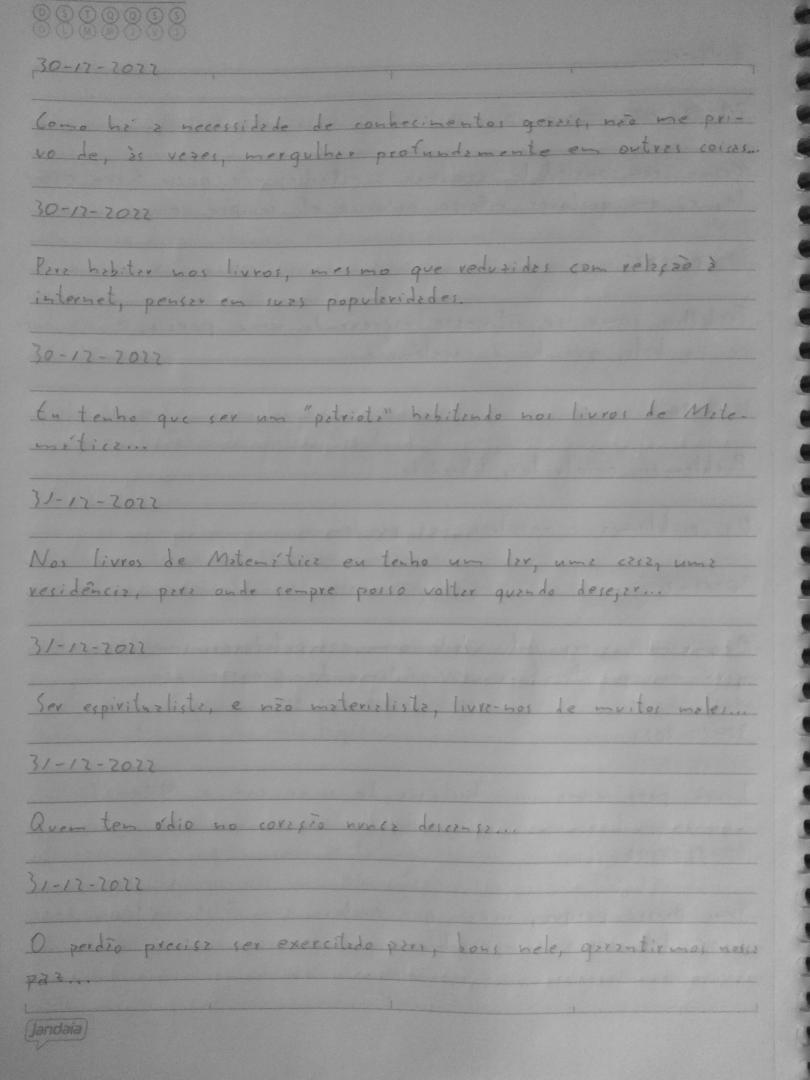 D S T Q Q S S
D L M M J V S
30-12-2022
Como há a necessidade de conhecimentos gerais, não me pri-
vo de, às vezes, mergulhar profundamente em outras coisas...
30-12-2022
Para habitar nos livros, mesmo que reduzidas com relação à
internet, pensar em suas popularidades.
30-12-2022
Eu tenho que ser um "patriota" habitando nos livros de Mate-
mática...
31-12-2022
Nos livros de Matemática eu tenho um lar, uma casa, uma
residência, para onde sempre posso voltar quando desejar...
31-12-2022
Ser espiritualista, e não materialista, livra-nos de muitos males...
31-12-2022
Quem tem ódio no coração nunca descansa...
31-12-2022
O perdão precisa ser exercitado para, bons nele, garantirmos nossa
paz...
jandaia